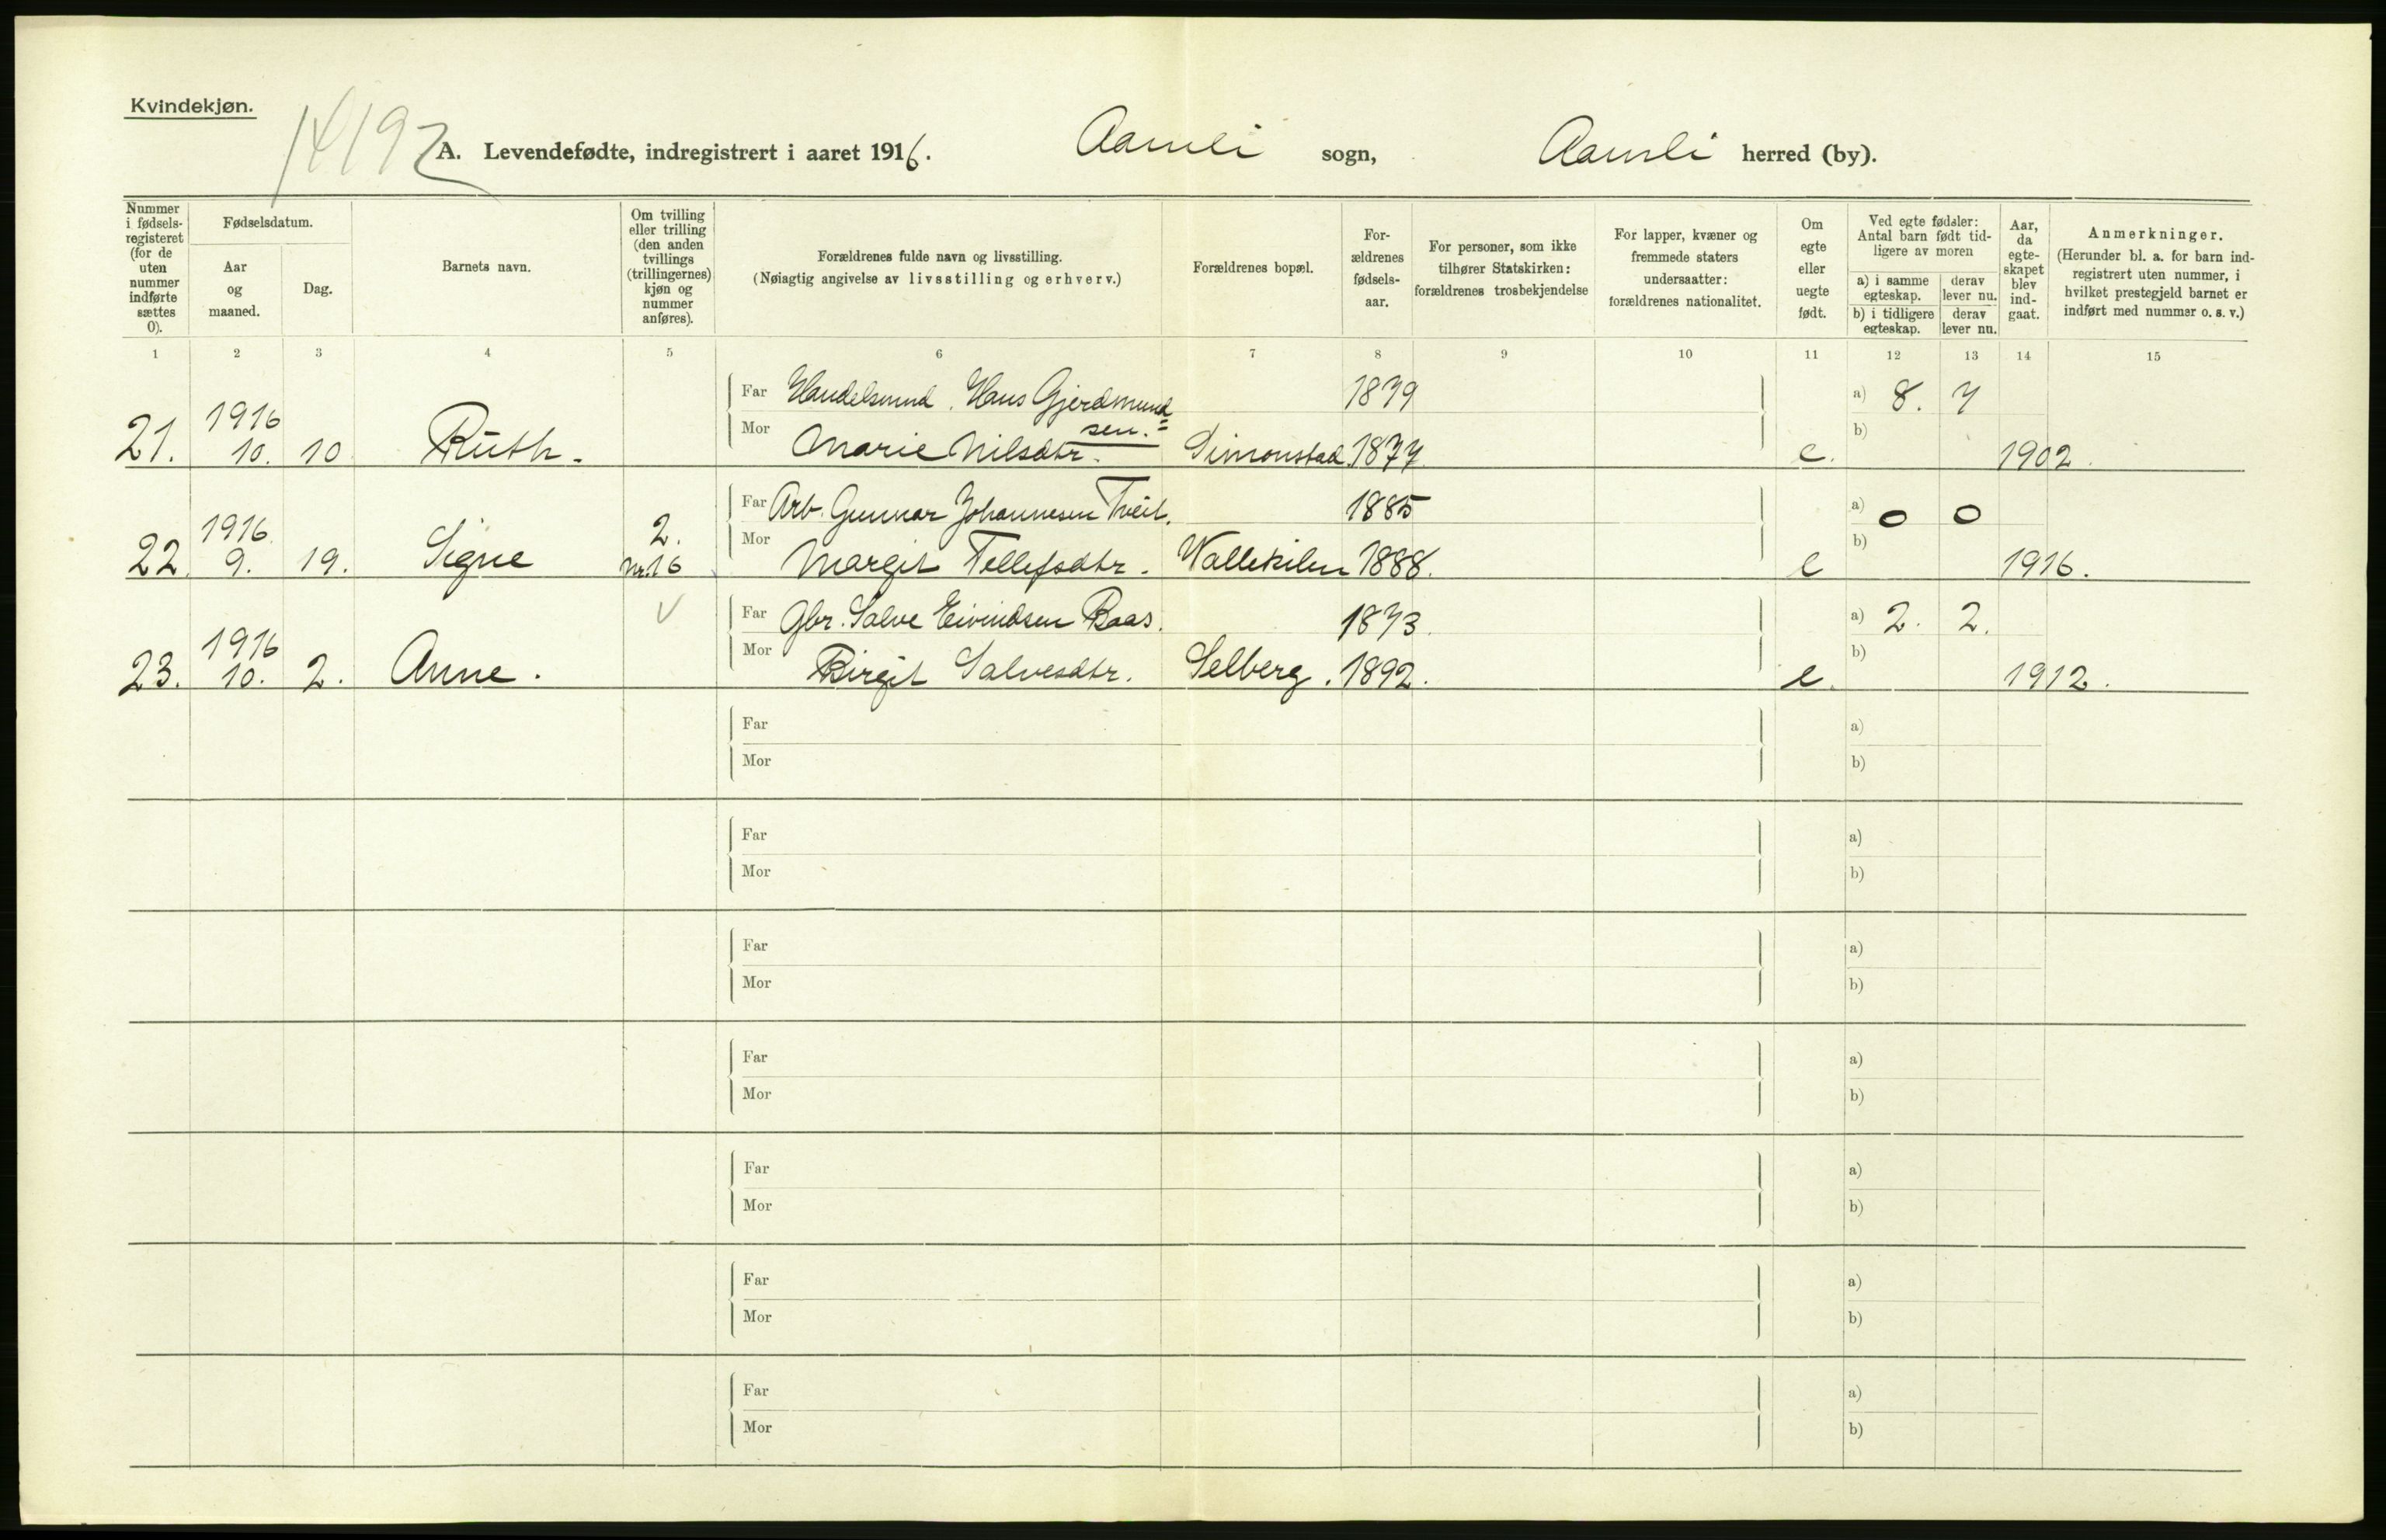 Kvindekjøn.
14192
A. Levendefødte, indregistrert i aaret 1916. Aamli sogn, Aamli herred (by).
Nummer i fødselsregisteret (for de uten nummer indførte sættes 0).
Fødselsdatum.
Aar og maaned.
Dag.
Barnets navn.
Om tvilling eller trilling (den anden tvillings (trillingernes) kjøn og nummer anføres).
Forældrenes fulde navn og livsstilling.
(Nøiagtig angivelse av livsstilling og erhverv.)
Forældrenes bopæl.
Forældrenes fødselsaar.
For personer, som ikke tilhører Statskirken: forældrenes trosbekjendelse
For lapper, kvæner og fremmede staters undersaatter: forældrenes nationalitet.
Om egte eller uegte født.
Ved egte fødsler: Antal barn født tidligere av moren
a) i samme egteskap.
derav lever nu.
b) i tidligere egteskap.
derav lever nu.
Aar, da egteskapet blev indgaat.
Anmerkninger.
(Herunder bl. a. for barn indregistrert uten nummer, i hvilket prestegjeld barnet er indført med nummer o. s. v.)
1 2 3 4 5 6 7 8 9 10 11 12 13 14 15
Far Handelsmnd. Hans Gjerdmund 1879 a) 8. 7
1916
Mor sen.= b)
21. 10. 10 Ruth. Marie Nilsdtr. Simonstad 1877 e. 1902.
Far Arb. Gunnar Johannesen Tveit. 1885 a) 0 0
1916 2. Mor b)
22. 9. 19. Signe Nr.16 Margit Tellefsdtr. Wallekilen 1888. e 1916.
V Far Gbr. Salve Eivindsen Raas. 1873. a) 2. 2.
1916 Mor b)
23. 10. 2. Anne. Birgit Salvesdtr. Selberg. 1892. e. 1912.
Far a)
Mor b)
Far a)
Mor b)
Far a)
Mor b)
Far a)
Mor b)
Far a)
Mor b)
Far a)
Mor b)
Far a)
Mor b)